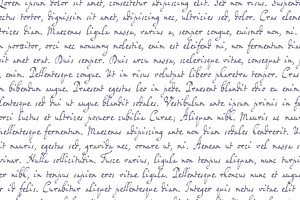 Lorem ipsum dolor sit amet, consectetur adipiscing elit. Sed non risus. Suspendisse
lectus tortor, dignissim sit amet, adipiscing nec, ultricies sed, dolor. Cras elementum
ultrices diam. Maecenas ligula massa, varius a, semper congue, euismod non, mi.
Proin porttitor, orci nec nonummy molestie, enim est eleifend mi, non fermentum diam
nisl sit amet erat. Duis semper. Duis arcu massa, scelerisque vitae, consequat in,
enim. Pellentesque congue. Ut in risus volutpat libero pharetra tempor. Cras
bibendum augue. Praesent egestas leo in pede. Praesent blandit odio eu enim.
Pellentesque sed dui ut augue blandit sodales. Vestibulum ante ipsum primis in
orci luctus et ultrices posuere cubilia Curae; Aliquam nibh. Mauris ac mauris
pellentesque fermentum. Maecenas adipiscing ante non diam sodales hendrerit. Ut
mauris, egestas sed, gravida nec, ornare ut, mi. Aenean ut orci vel massa
pulvinar. Nulla sollicitudin. Fusce varius, ligula non tempus aliquam, nunc turpis
nibh, in tempus sapien eros vitae ligula. Pellentesque rhoncus nunc et augue
id felis. Curabitur aliquet pellentesque diam. Integer quis metus vitae elit